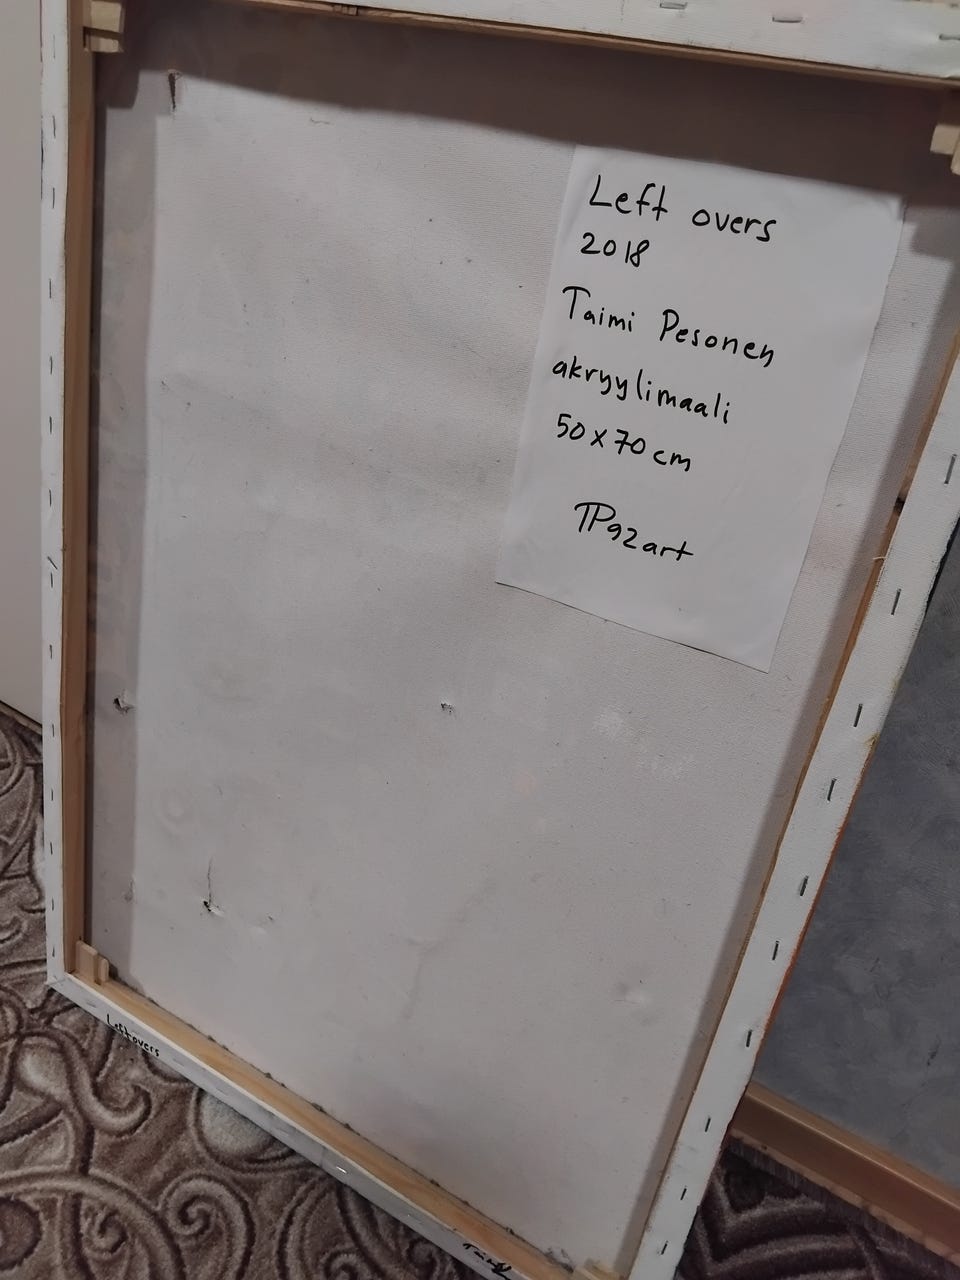 Left overs
2018
Taimi Pesonen
akryylimaali
50x70 cm
TP92art
Leftovers